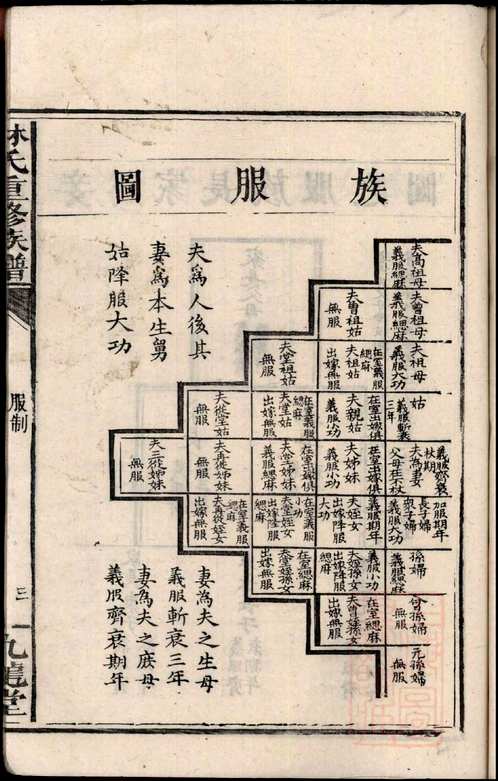 族服圖
夫為人後其
妻為本生舅
姑降服大功
夫高祖母
義服緦麻
夫曾祖母
義服緦麻
夫曾祖姑
無服
夫祖母
義服大功
夫祖姑
在室義服緦麻
出嫁無服
夫堂祖姑
無服
姑
義服斬衰三年
夫親姑
在室出嫁俱義服小功
夫堂姑
在室義服緦麻
出嫁無服
夫從堂姑
無服
夫為妻
義服齊衰杖期
父母在不杖
夫姊妹
在室出嫁俱義服小功
夫堂姊妹
在室出嫁俱義服緦麻
夫再從姊妹
無服
夫三從姊妹
無服
長子婦
加服期年
衆子婦
義服大功
夫姪女
在室義服期年
出嫁降服大功
夫堂姪女
在室義服小功
出嫁降服緦麻
夫再從姪女
在室義服緦麻
出嫁無服
孫婦
義服緦麻
夫姪孫女
在室義服小功
出嫁降服緦麻
夫堂姪孫女
在室緦麻
出嫁無服
曾孫婦
無服
夫曾姪孫女
在室緦麻
出嫁無服
元孫婦
無服
妻為夫之生母
義服斬衰三年
妻為夫之庶母
義服齊衰期年
林氏重修族譜
服制
三
九龍堂